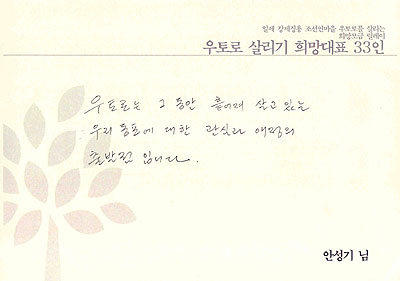 일제 강제징용 조선인마을 우토로를 살리는
희망모금 릴레이
우토로 살리기 희망대표 33인
우토로는 그 동안 흩어져 살고 있는
우리 동포에 대한 관심과 애정의
출발점 입니다.
안성기 님